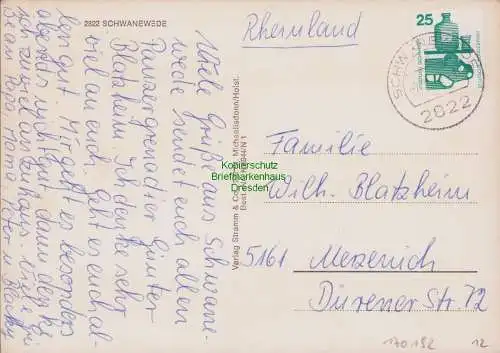 2822 SCHWANEWEDE
Rheinland
25
SCHWANEWEDE
2822
Viele Grüße aus Schwane-
wede sendet euch allen
Panzergrenadier Günter
Blatzheim. Ich denke sehr
viel an euch. Geht es euch al-
len gut. Mir geht es besonders
abends nicht gut dann denke
ich zuviel an zuhause. Viele
Papa Mama Peter
Verlag Stramm & Co. Michaelisdonn/Holst.
Best.
Kopierschutz
Briefmarkenhaus
Dresden
Familie
Wilh. Blatzheim
5161 Merzenich
Dürener Str. 72
170192
12